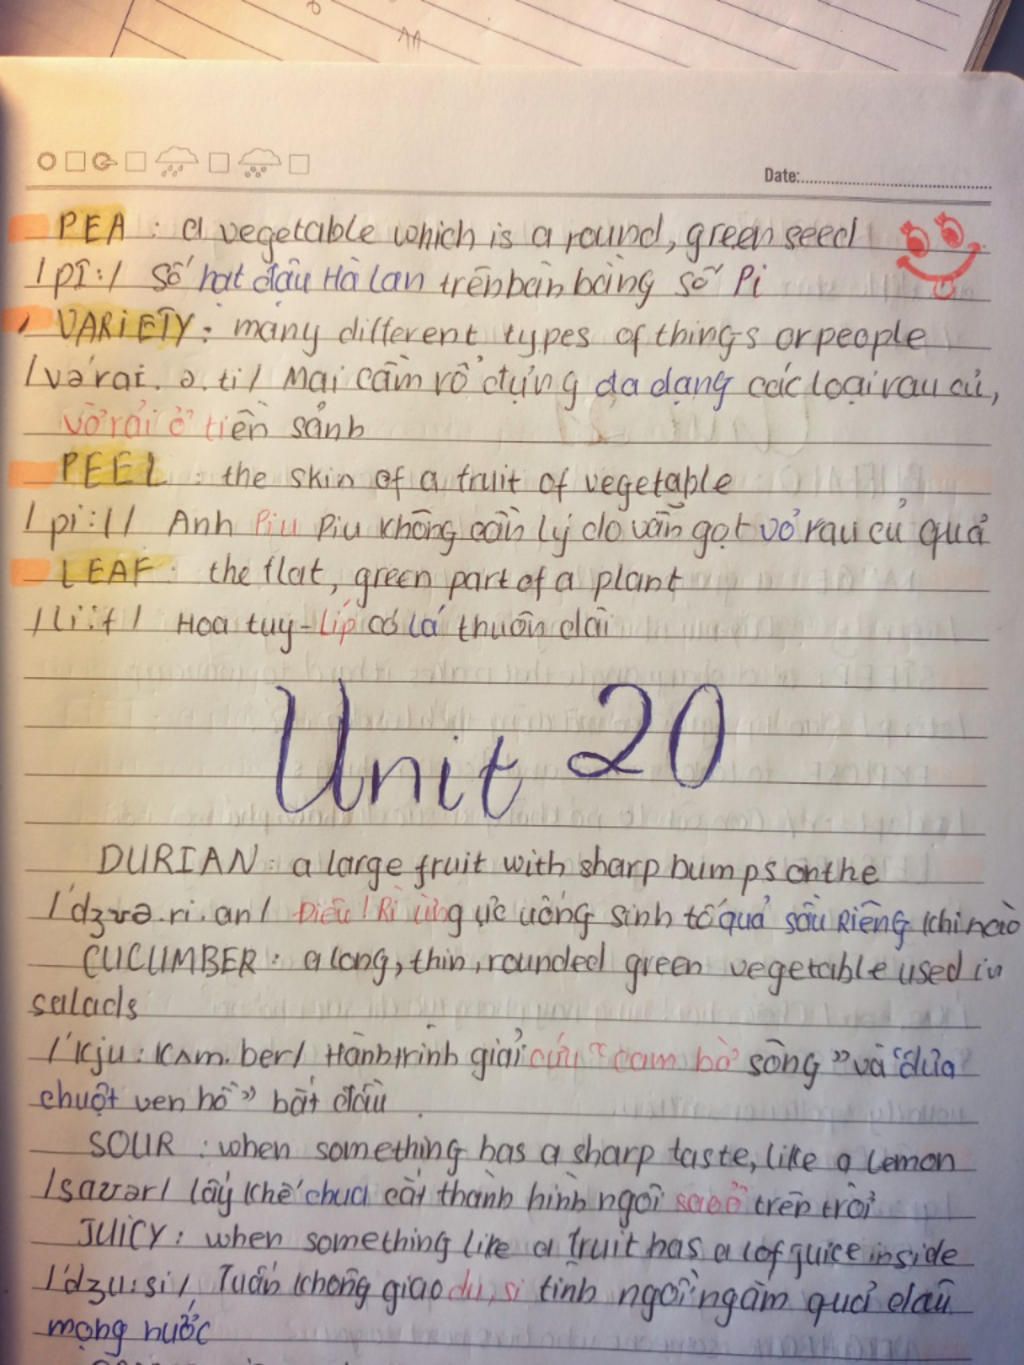 Date:
PEA : a vegetable which is a round, green seed
/pi:/ Số hạt đậu Hà Lan trên bàn bằng số Pi
VARIETY : many different types of things or people
/vəˈraɪ.ə.ti/ Mai cầm rổ đựng đa dạng các loại rau củ,
vờ rải ở tiền sảnh
PEEL : the skin of a fruit of vegetable
/pi:l/ Anh Piu Piu không cần lý do vẫn gọt vỏ rau củ quả
LEAF : the flat, green part of a plant
/li:f/ Hoa tuy-líp có lá thuôn dài
Unit 20
DURIAN : a large fruit with sharp bumps on the
/ˈdʒʊə.ri.an/ Điêu! Ri ừng ực uống sinh tố quả sầu Riêng khi nào
CUCUMBER : a long, thin, rounded green vegetable used in
salads
/ˈkju:kʌm.bər/ Hành trình giải cứu "cam bờ sông" và "dưa
chuột ven hồ" bắt đầu
SOUR : when something has a sharp taste, like a lemon
/saʊər/ lấy khế chua cắt thành hình ngôi sao ở trên trời
JUICY : when something like a fruit has a lof guice inside
/ˈdʒu:si/ Tuấn không giao du, si tình ngồi ngắm quả dâu
mọng nước